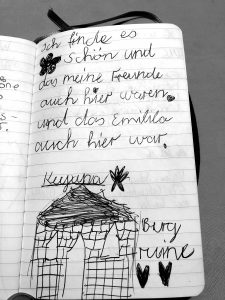 ich finde es
schön und
das meine Freunde
auch hier waren.
und das Emilila
auch hier war.
Burg
ruine